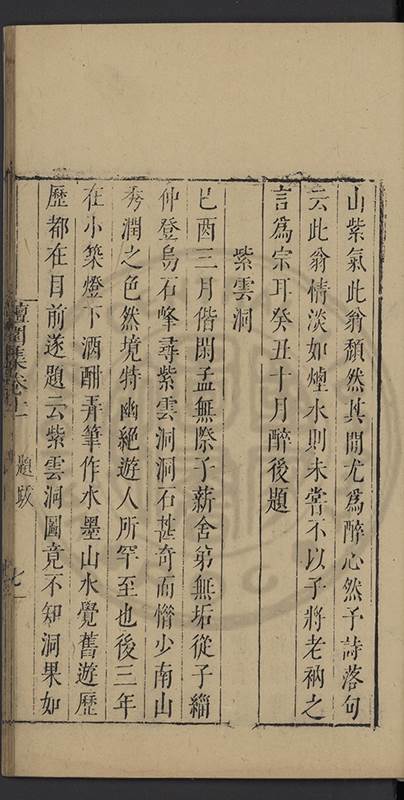 山紫氣此翁頹然其間尤爲醉心然予詩落句
云此翁情淡如煙水則未嘗不以子將老衲之
言爲宗耳癸丑十月醉後題
紫雲洞
己酉三月偕閑孟無際子薪舍弟無垢從子緇
仲登烏石峰尋紫雲洞洞石甚奇而惜少南山
秀潤之色然境特幽絕遊人所罕至也後三年
在小築燈下酒酣弄筆作水墨山水覺舊遊歷
歷都在目前遂題云紫雲洞圖竟不知洞果如
檀園集卷十一
題跋
七